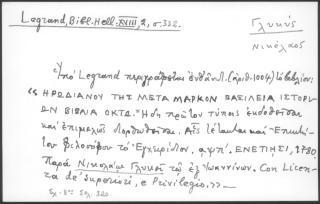 Legrand, Bibl. Hell. XVIII, 2, σ. 322.
Γλυκύς
Νικόλαος
Ὑπὸ Legrand περιγράφεται (ἀριθ. 1004) τὸ βιβλίον:
«ΗΡΩΔΙΑΝΟΥ ΤΗΣ ΜΕΤΑ ΜΑΡΚΟΝ ΒΑΣΙΛΕΙΑ ΙΣΤΟΡΙ
ΩΝ ΒΙΒΛΙΑ ΟΚΤΩ. Ἤδη πρῶτον τύποις ἐκδοθεῖσαι
καὶ ἐπιμελῶς διορθωθεῖσαι. καὶ Ἐπικτή
του φιλοσόφου τὸ Ἐγχειρίδιον, αψπʹ. ΕΝΕΤΙΗΣΙ, 1780.
Παρὰ Νικολάῳ Γλυκεῖ τῷ ἐξ Ἰωαννίνων. Con Licen
za de' Superiori, e Privilegio,»